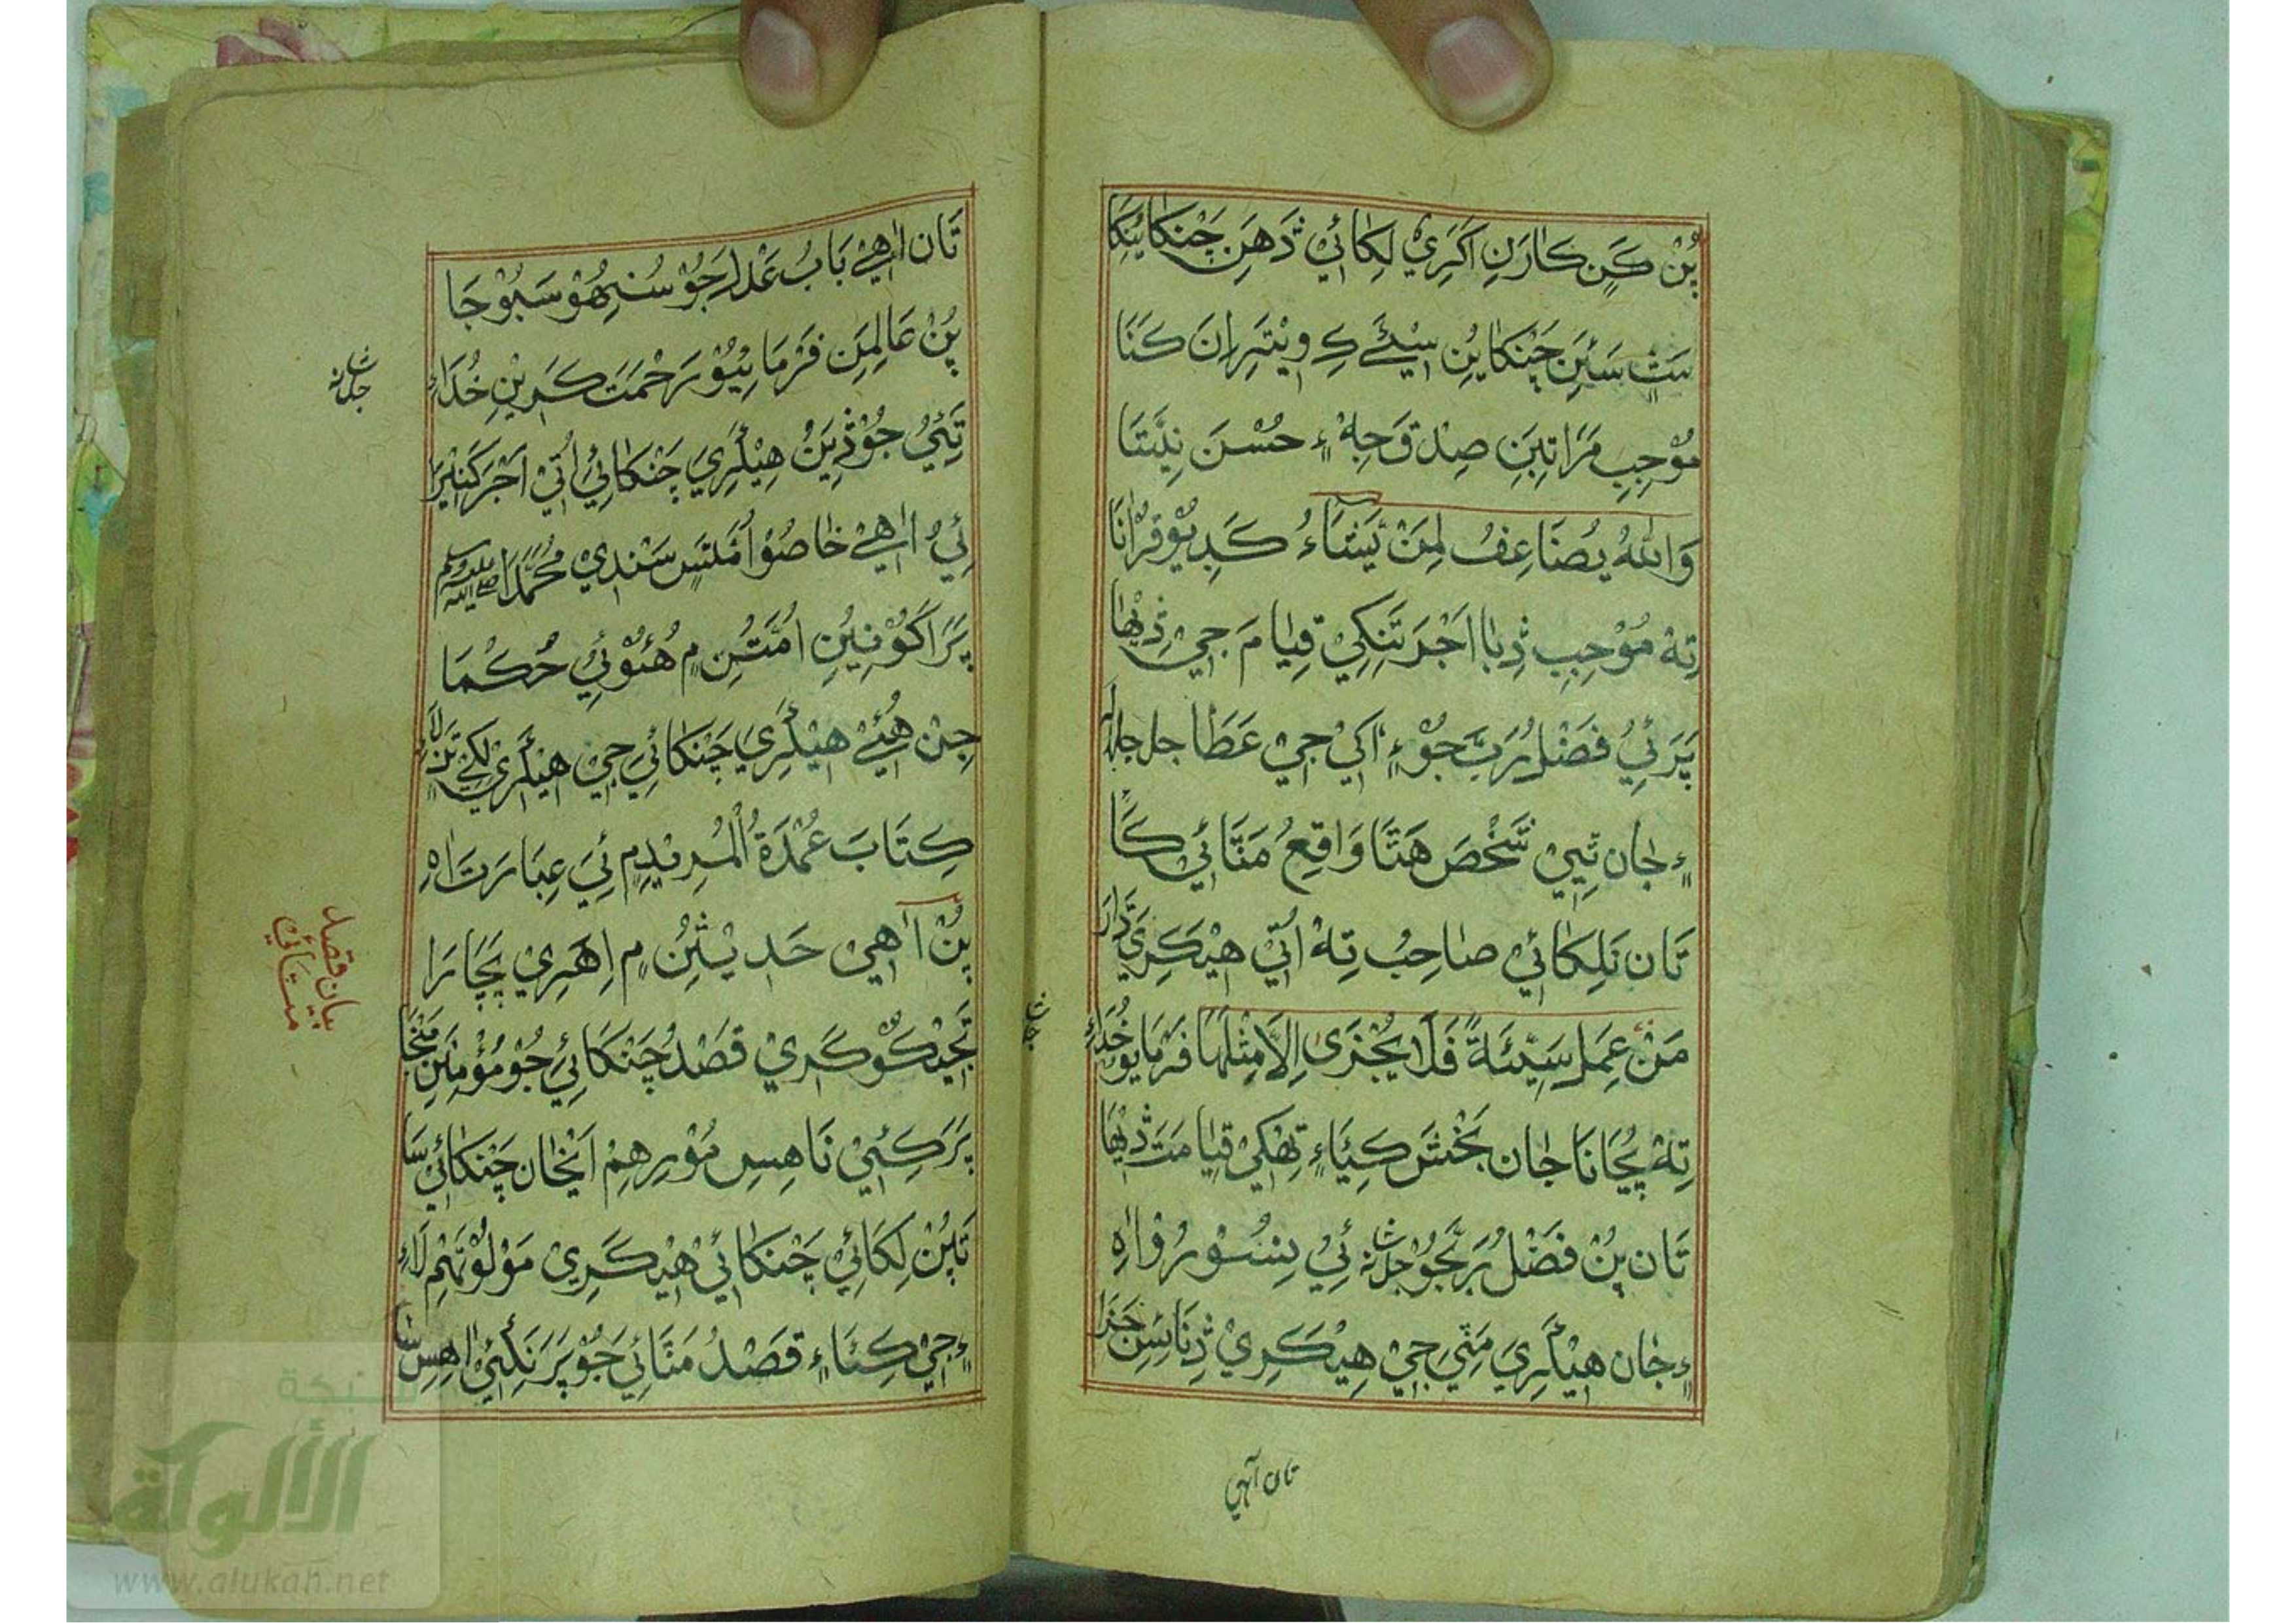 پُنْ ڪَنِ ڪَارَنِ اَکَرِيْ لِکَائِيْ ڎَهَنِ چَنْکَائِيْکَا
سَتِ سَئِنِ چَنْکَايُنِ سِيْئَے ڪِ وِيْتَرِ اِنَ ڪَنَا
مُوْجِبِ مَرَاتِبَنِ صِدْقَ وَجِهْ ۽ حُسْنَ نِيَّتَا
وَاللّٰهُ يُضَاعِفُ لِمَنْ يَّشَاءُ ڪَڍِيُوْ قُرْاٰنَا
تِهْ مُوْجِبِ ڎِبَا اَجْرَ تَنِکِيْ قِيَامَ جِيْ ڎِيْهَا
پَرَ ئِيُ فَضْلُ رَبَّ جُوْ ۽ اُکِيْ جِيْ عَطَا جل جلاله
۽ جَان تِيِيْ شَخْصَ هَتَا وَاقِعُ مَتَائِيْ ڪَا
تَان تَلِکَائِيْ صَاحِبُ تِهْ اُتِيْ هِيْکَڪِرِيْ
مَنْ عَمِلَ سَيِّئَةً فَلَا يُجْزٰى اِلَّا مِثْلَهَا فَرْمَايُوْ خُدَاءِ
تِهْ پُڄَانَا جَان بَخْشَ ڪِيَاءِ تِهْکِيْ قِيَامَتَ ڎِيْهَا
تَان پُنْ فَضْلُ رَبَّ جُوْ جل شانه ئِيْ بِسُوْرُوْا اٰهِ
۽ جَان هِيْکَرِيْ مَٿِيَ جِيْ هِيْڪَرِيْ ڎِنَائِسِ جَزَا
تان آهي
تَان اٰهِے بَابُ عَدْلَ جُوْ سُنِهُوْ سَبُوْجَا
پُنْ عَالِمِنِ فَرْمَايِيُوْ رَحْمَتَ ڪَرِيْنِ خُدَاءِ
جل شانه
تِيَئِيُ جُوْ ڎِيَنُ هِيْکَرِيْ چَنْکَائِيْ اُتِيْ اَجْرَ ڪَثِيْرَا
ئِيُ اٰهِے خَاصُوْ اُمَّتِسِ سَنْدِيْ مُحَمَّدَا صلی الله علیه وسلم
پَرَ اَکُوْنِيُنِ اُمَّتُنِ ۾ هُئُوْئِيْ حُڪْمَا
جِنْ هُئِے هِيْکَرِيْ چَنْکَائِيَ جِيْ هِيْکَرِيْ لِکِے تَنِ لَاءِ
ڪِتَابَ عُمْدَةُ الْمُرِيْدِ ۾ ئِيَ عِبَارَتَ اٰهِ
پُنْ اٰهِيْ حَدِيْثِنُ ۾ اِهَرِيْ پَچَارَا
تَجِيْڪُوْ ڪَرِيْ قَصْدُ چَنْکَائِيَ جُوْ مُؤْمِنَنِ مَنْجَا
بيان قصد مٺائي
پَرَ ڪَئِيْ نَاهِسِ مُوْرِهِمْ اَنْجَان چَنْکَائِيْ سَا
تَپُنْ لِکَائِيْ چَنْکَائِيْ هِيْڪَرِيْ مَوْلُوْ تَهِمْ لَاءِ
۽ جِيْ ڪِئَاءِ قَصْدُ مَتَائِيَ جُوْ پَرَ نَڪِئِيْ اٰهِسِ سَا
شبكة
الألوكة
www.alukah.net